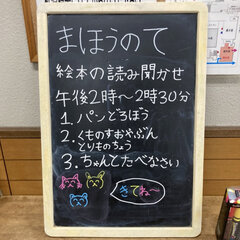 まほうのて
絵本の読み聞かせ
午後2時～2時30分
1. パンどろぼう
2. くものすおやぶん
とりものちょう
3. ちゃんとたべなさい
きてね～